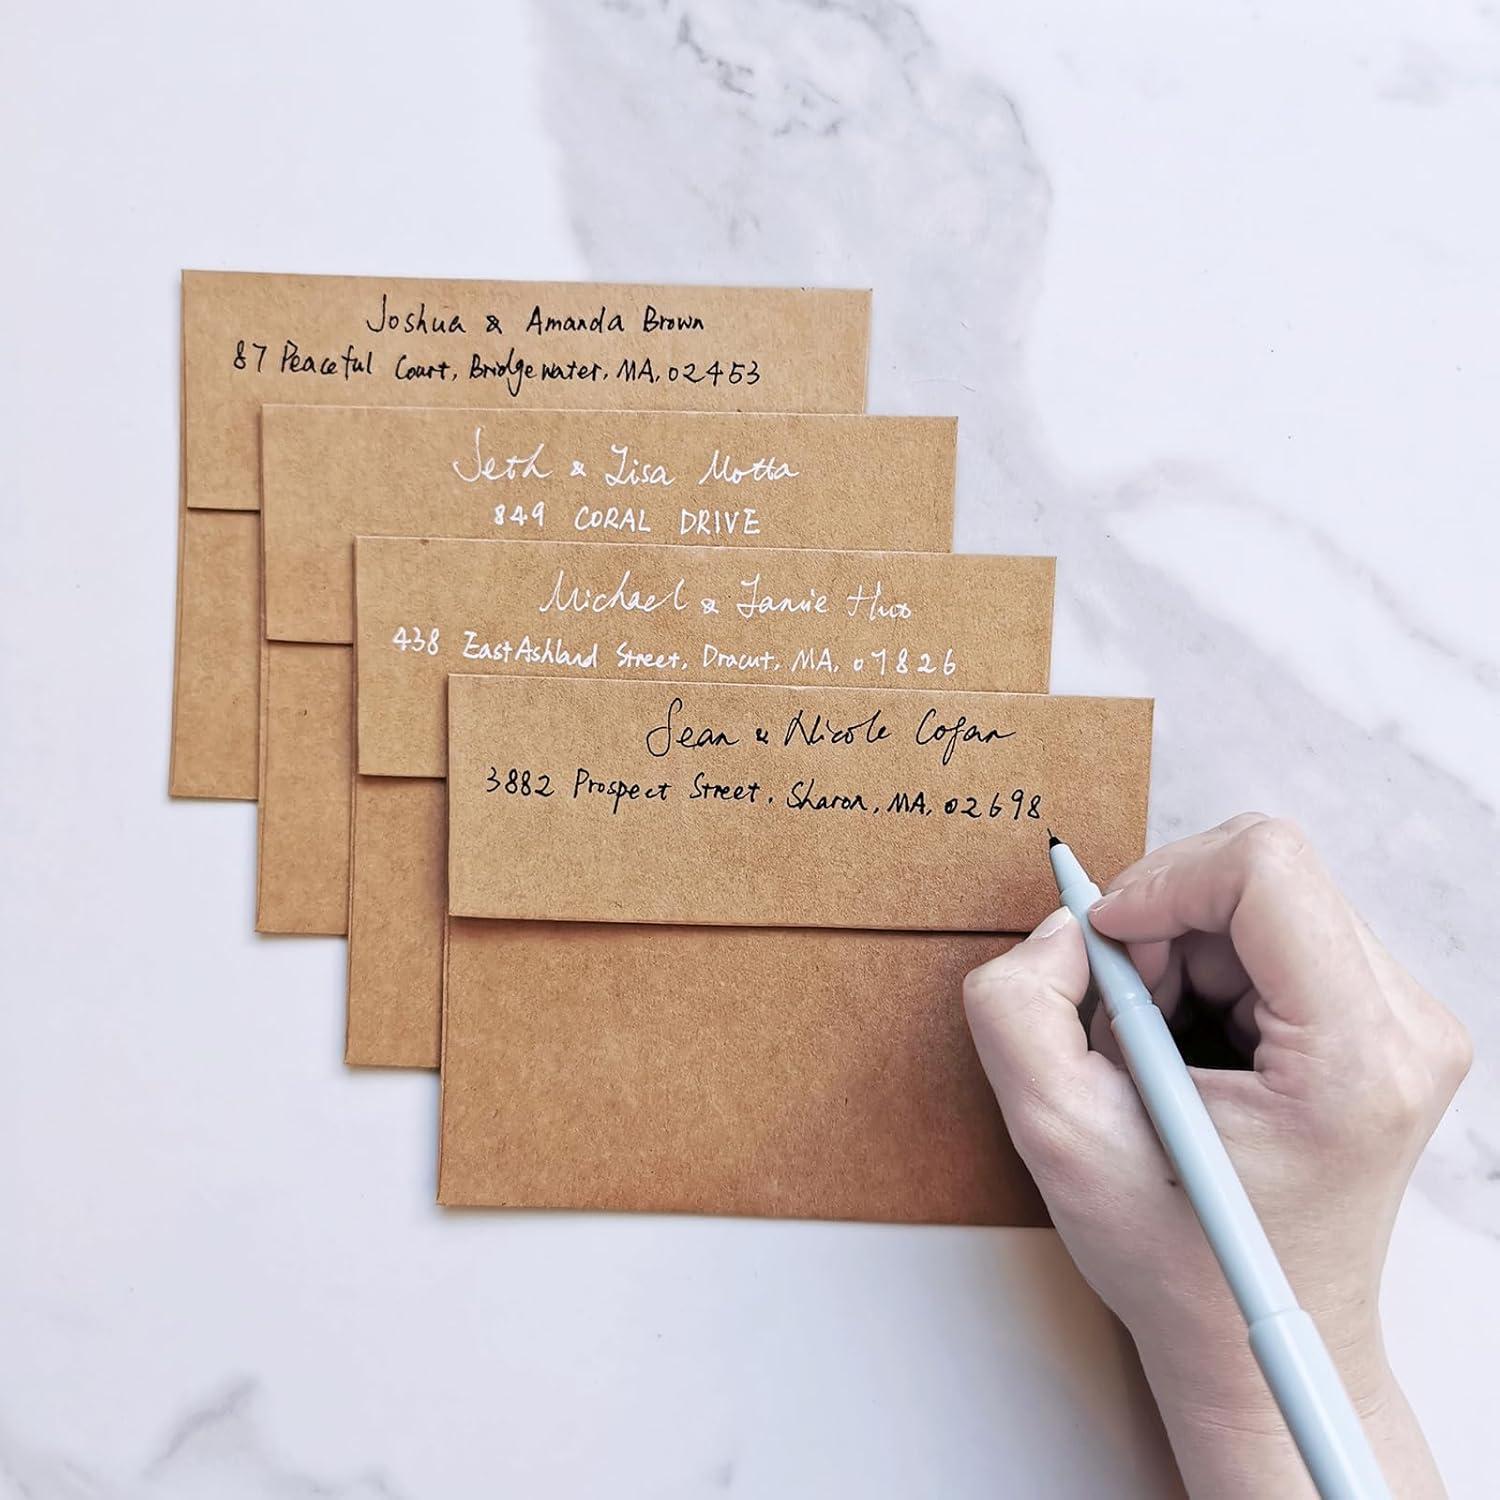 Joshua & Amanda Brown
87 Peaceful Court, Bridgewater, MA, 02453
Seth & Lisa Motta
849 CORAL DRIVE
Michael & Jamie
438 East Ashland Street, Dracut, MA, 01826
Sean & Nicole Cofan
3882 Prospect Street, Sharon, MA, 02698